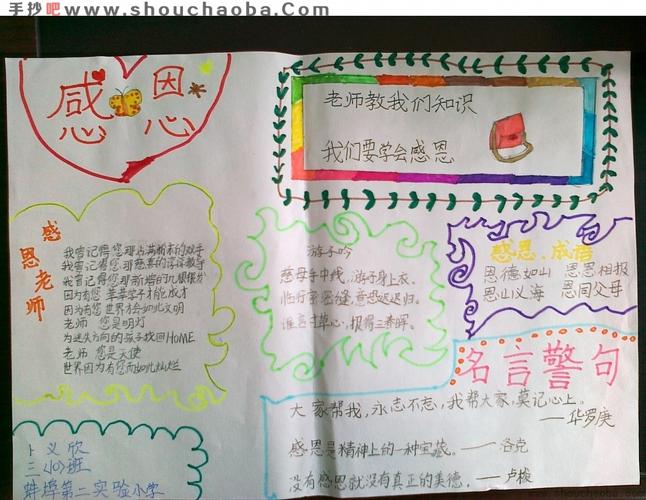 手抄吧 www.shouchaoba.com
感恩
老师教我们知识
我们要学会感恩
感恩老师
我曾记得您那占满粉末的双手
我曾记得您那慈祥的谆谆教导
我曾记得您那新增的几根银发
因为有您 莘莘学子才能成才
因为有您 世界才会如此文明
老师 您是明灯
为迷失方向的孩子找回HOME
老师 您是天使
世界因为有您而如此灿烂
游子吟
慈母手中线，游子身上衣。
临行密密缝，意恐迟迟归。
谁言寸草心，报得三春晖。
感恩.成语
恩德如山 恩恩相报
恩山义海 恩同父母
名言警句
大家帮我，永志不忘，我帮大家，莫记心上。
——华罗庚
感恩是精神上的一种宝藏。——洛克
没有感恩就没有真正的美德。——卢梭
卜义欣
三（10）班
蚌埠第二实验小学